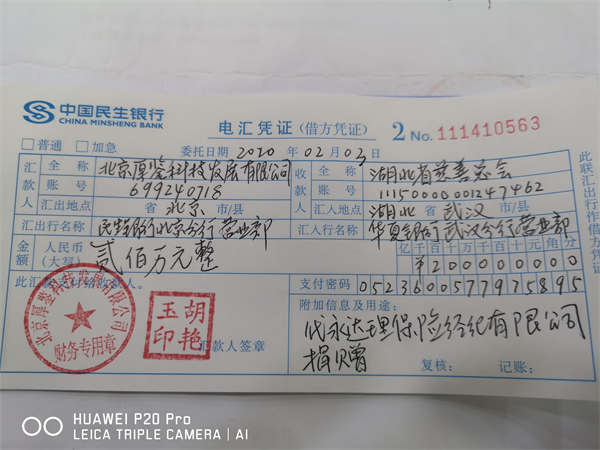 中国民生银行
CHINA MINSHENG BANK
电汇凭证 (借方凭证) 2 No. 111410563
普通 加急 委托日期 2020 年 02 月 03 日
汇款人 全称 北京厚鉴科技发展有限公司 收款人 全称 湖北省慈善总会
账号 699240718 账号 11150000001247462
汇出地点 省 北京 市/县 汇入地点 湖北 省 武汉 市/县
汇出行名称 民生银行北京分行营业部 汇入行名称 华夏银行武汉分行营业部
金额 人民币 (大写) 贰佰万元整 亿 千 百 十 万 千 百 十 元 角 分
¥ 2 0 0 0 0 0 0 0 0
支付密码 0523600577975895
此汇款支付给收款人。
附加信息及用途:
代永达理保险经纪有限公司
捐赠
汇款人签章
复核: 记账:
北京厚鉴科技发展有限公司
财务专用章
胡艳玉印
此联汇出行作借方凭证
HUAWEI P20 Pro
LEICA TRIPLE CAMERA | AI